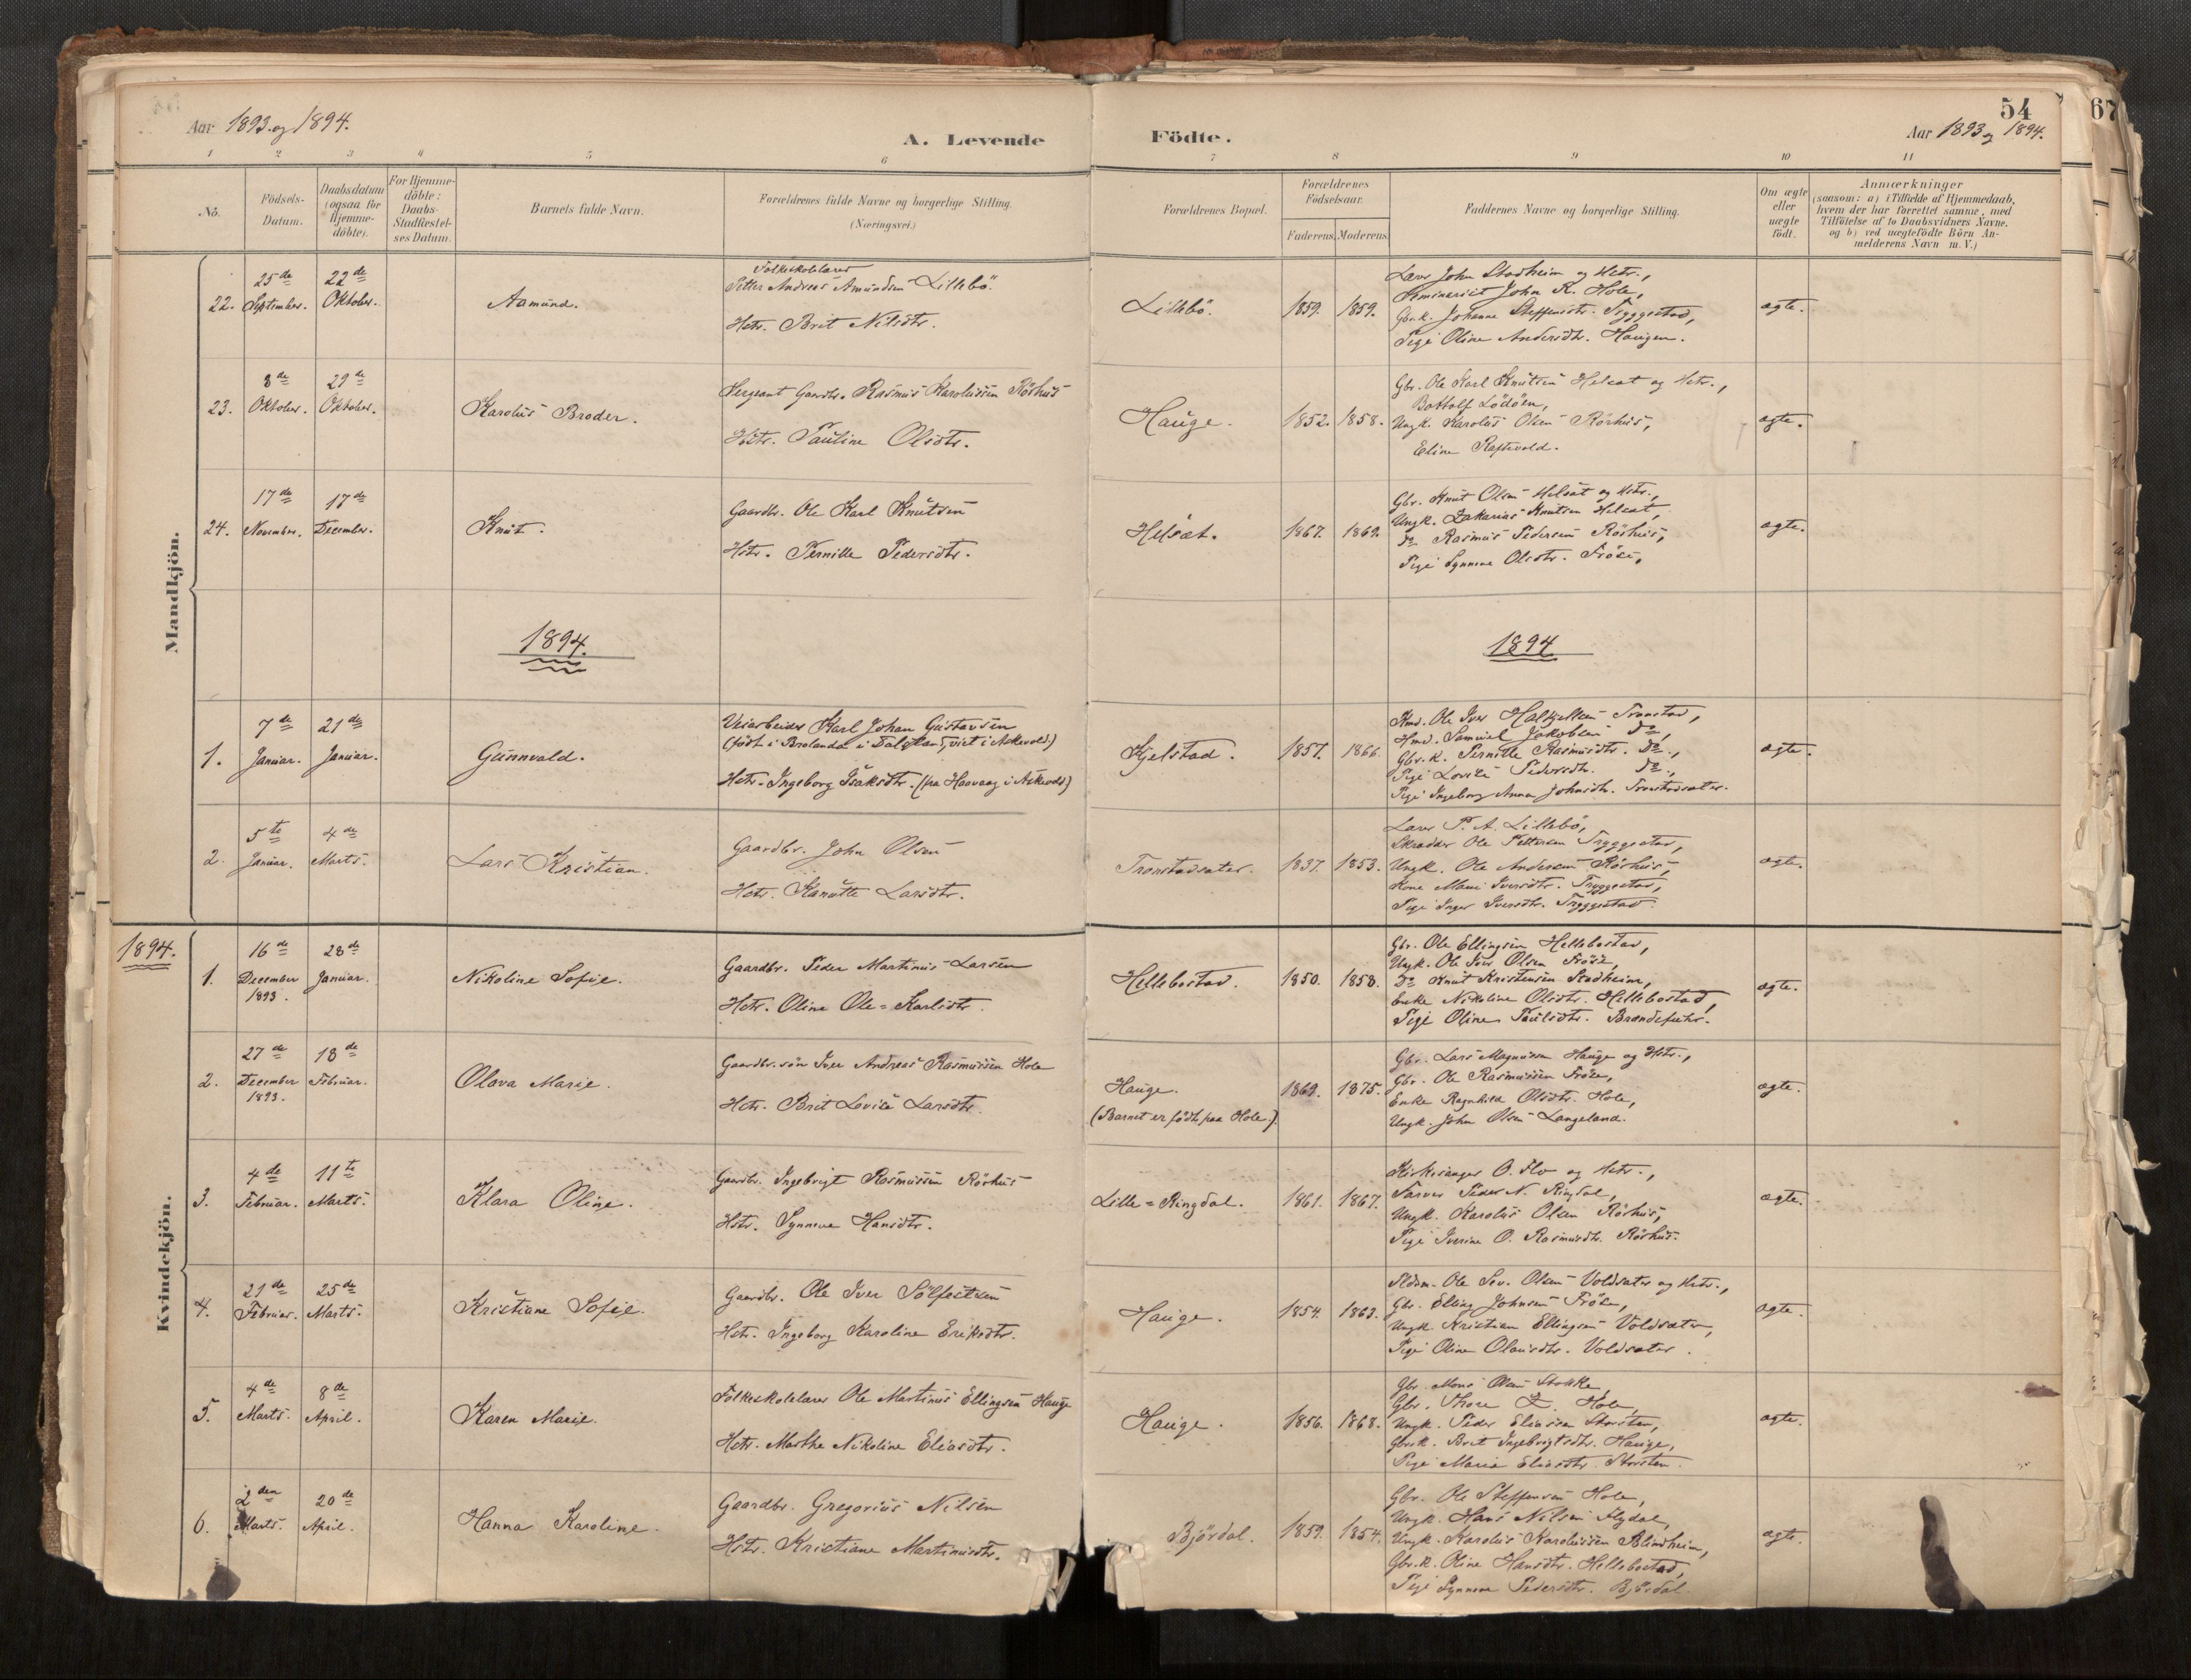 54
67
Aar 1893. og 1894.
A. Levende
Födte.
Aar 1893 og 1894.
1 2 3 4 5 6
7 8 9 10 11
No.
Födsels-
Datum.
Daabsdatum
(ogsaa for
Hjemme-
döbte).
For Hjemme-
döbte:
Daabs-
Stadfæstel-
ses Datum.
Barnets fulde Navn.
Forældrenes fulde Navne og borgerlige Stilling.
(Næringsvei.)
Forældrenes Bopæl.
Forældrenes
Födselsaar.
Faderens. Moderens.
Faddernes Navne og borgerlige Stilling.
Om ægte
eller
uægte
födt.
Anmærkninger
(saasom: a) i Tilfælde af Hjemmedaab,
hvem der har forrettet samme, med
Tilföielse af to Daabsvidners Navne.
og b) ved uægtefödte Börn An-
melderens Navn m. V.)
Mandkjön.
22.
25de
September.
22de
Oktober.
Aamund.
Folkeskolelærer
Petter Andreas Amundsen Lillebö.
Hstr. Brit Nilsdtr.
Lillebö.
1859. 1859.
Lærer John Stadheim og Hstr.,
Seminarist John R. Hole,
Gbr.k. Johanne Steffensdtr. Tryggestad,
Pige Oline Andersdtr. Haugen.
ægte.
23.
8de
Oktober.
29de
Oktober.
Karolus Broder.
Sergeant Gaardbr. Rasmus Karolussen Rörhus
Hstr. Pauline Olsdtr.
Hauge.
1852. 1858.
Gbr. Ole Karl Knutsen Helsæt og Hstr.,
Bottolf Lödöen,
Ungk. Karolus Olsen Rörhus,
Eline Raftevold.
ægte.
24.
17de
Novembr.
17de
December.
Knut.
Gaardbr. Ole Karl Knutsen
Hstr. Pernille Pedersdtr.
Helsæt.
1867. 1869.
Gbr. Knut Olsen Helsæt og Hstr.,
Ungk. Zakarias Knutsen Helsæt,
Do Rasmus Pedersen Rörhus,
Pige Synneve Olsdtr. Fröse,
ægte.
1894.
1894
1.
7de
Januar.
21de
Januar.
Gunnvald.
Veiarbeider Karl Johan Gustavsen
(födt i Brolanda i Dalsland, viet i Askevold)
Hstr. Ingeborg Isaksdtr. (fra Haavaag i Askevold)
Kjelstad.
1857. 1866.
Hmd. Ole Iver Halkjelsen Tronstad,
Hmd. Samuel Jakobsen Do,
Gbr.k. Pernille Rasmusdtr. Do,
Pige Lovise Pedersdtr. Do,
Pige Ingeborg Anna Johnsdtr. Tronstadsæter.
ægte.
2.
5te
Januar.
4de
Marts.
Lars Kristian.
Gaardbr. John Olsen
Hstr. Kanutte Larsdtr.
Tronstadsæter.
1837. 1853.
Lærer P. A. Lillebö,
Skrædder Ole Pettersen Tryggestad,
Ungk. Ole Andersen Rörhus,
Kone Mari Iversdtr. Tryggestad,
Pige Inger Iversdtr. Tryggestad.
ægte.
1894.
Kvindekjön.
1.
16de
December
1893.
28de
Januar.
Nikoline Sofie.
Gaardbr. Peder Martinus Larsen
Hstr. Oline Ole=Karlsdtr.
Hellebostad.
1850. 1858.
Gbr. Ole Ellingsen Hellebostad,
Ungk. Ole Iver Olsen Fröse,
Do Knut Kristensen Stadheim,
Enke Nikoline Olsdtr. Hellebostad,
Pige Oline Paulsdtr.
ægte.
2.
27de
December
1893.
18de
Februar.
Olava Marie.
Gaardbr.sön Iver Andreas Rasmussen Hole
Hstr. Brit Lovise Larsdtr.
Hauge.
(Barnet er födt paa Hole.)
1869. 1875.
Gbr. Lars Magnussen Hauge og Hstr.,
Gbr. Ole Rasmussen Fröse,
Enke Ragnhild Olsdtr. Hole,
Ungk. John Olsen Langeland.
ægte.
3.
4de
Februar.
11te
Marts.
Klara Oline.
Gaardbr. Ingebrigt Rasmussen Rörhus
Hstr. Synneve Hansdtr.
Lille=Ringdal.
1861. 1867.
Kirkesanger O. Flo og Hstr.,
Farver Peder N. Ringdal,
Ungk. Karolus Olsen Rörhus,
Pige Iverine O. Rasmusdtr. Rörhus.
ægte.
4.
21de
Februar.
25de
Marts.
Kristiane Sofie.
Gaardbr. Ole Iver Sölfestsen
Hstr. Ingeborg Karoline Eriksdtr.
Hauge.
1854. 1863.
Ole Sev. Olsen Voldsæter og Hstr.,
Gbr. Elling Johnsen Fröse,
Ungk. Kristian Ellingsen Voldsæter,
Pige Oline Olausdtr. Voldsæter.
ægte.
5.
4de
Marts.
8de
April.
Karen Marie.
Folkeskolelærer Ole Martinus Ellingsen Hauge
Hstr. Marthe Nikoline Eliasdtr.
Hauge.
1856. 1868.
Gbr. Mons Olsen Stokke,
Gbr. Thore Hole,
Ungk. Peder Eliassen Storsten,
Gbr.k. Brit Ingebrigtsdtr. Hauge,
Pige Marie Eliasdtr. Storsten.
ægte.
6.
2den
Marts.
20de
April.
Hanna Karoline.
Gaardbr. Gregorius Nilsen
Hstr. Kristiane Martinusdtr.
Björdal.
1859. 1854.
Gbr. Ole Steffensen Hole,
Ungk. Hans Nilsen Flydal,
Ungk. Karolus Karolussen Blindheim,
Gbr.k. Oline Hansdtr. Hellebostad,
Pige Synneve Pedersdtr. Björdal.
ægte.